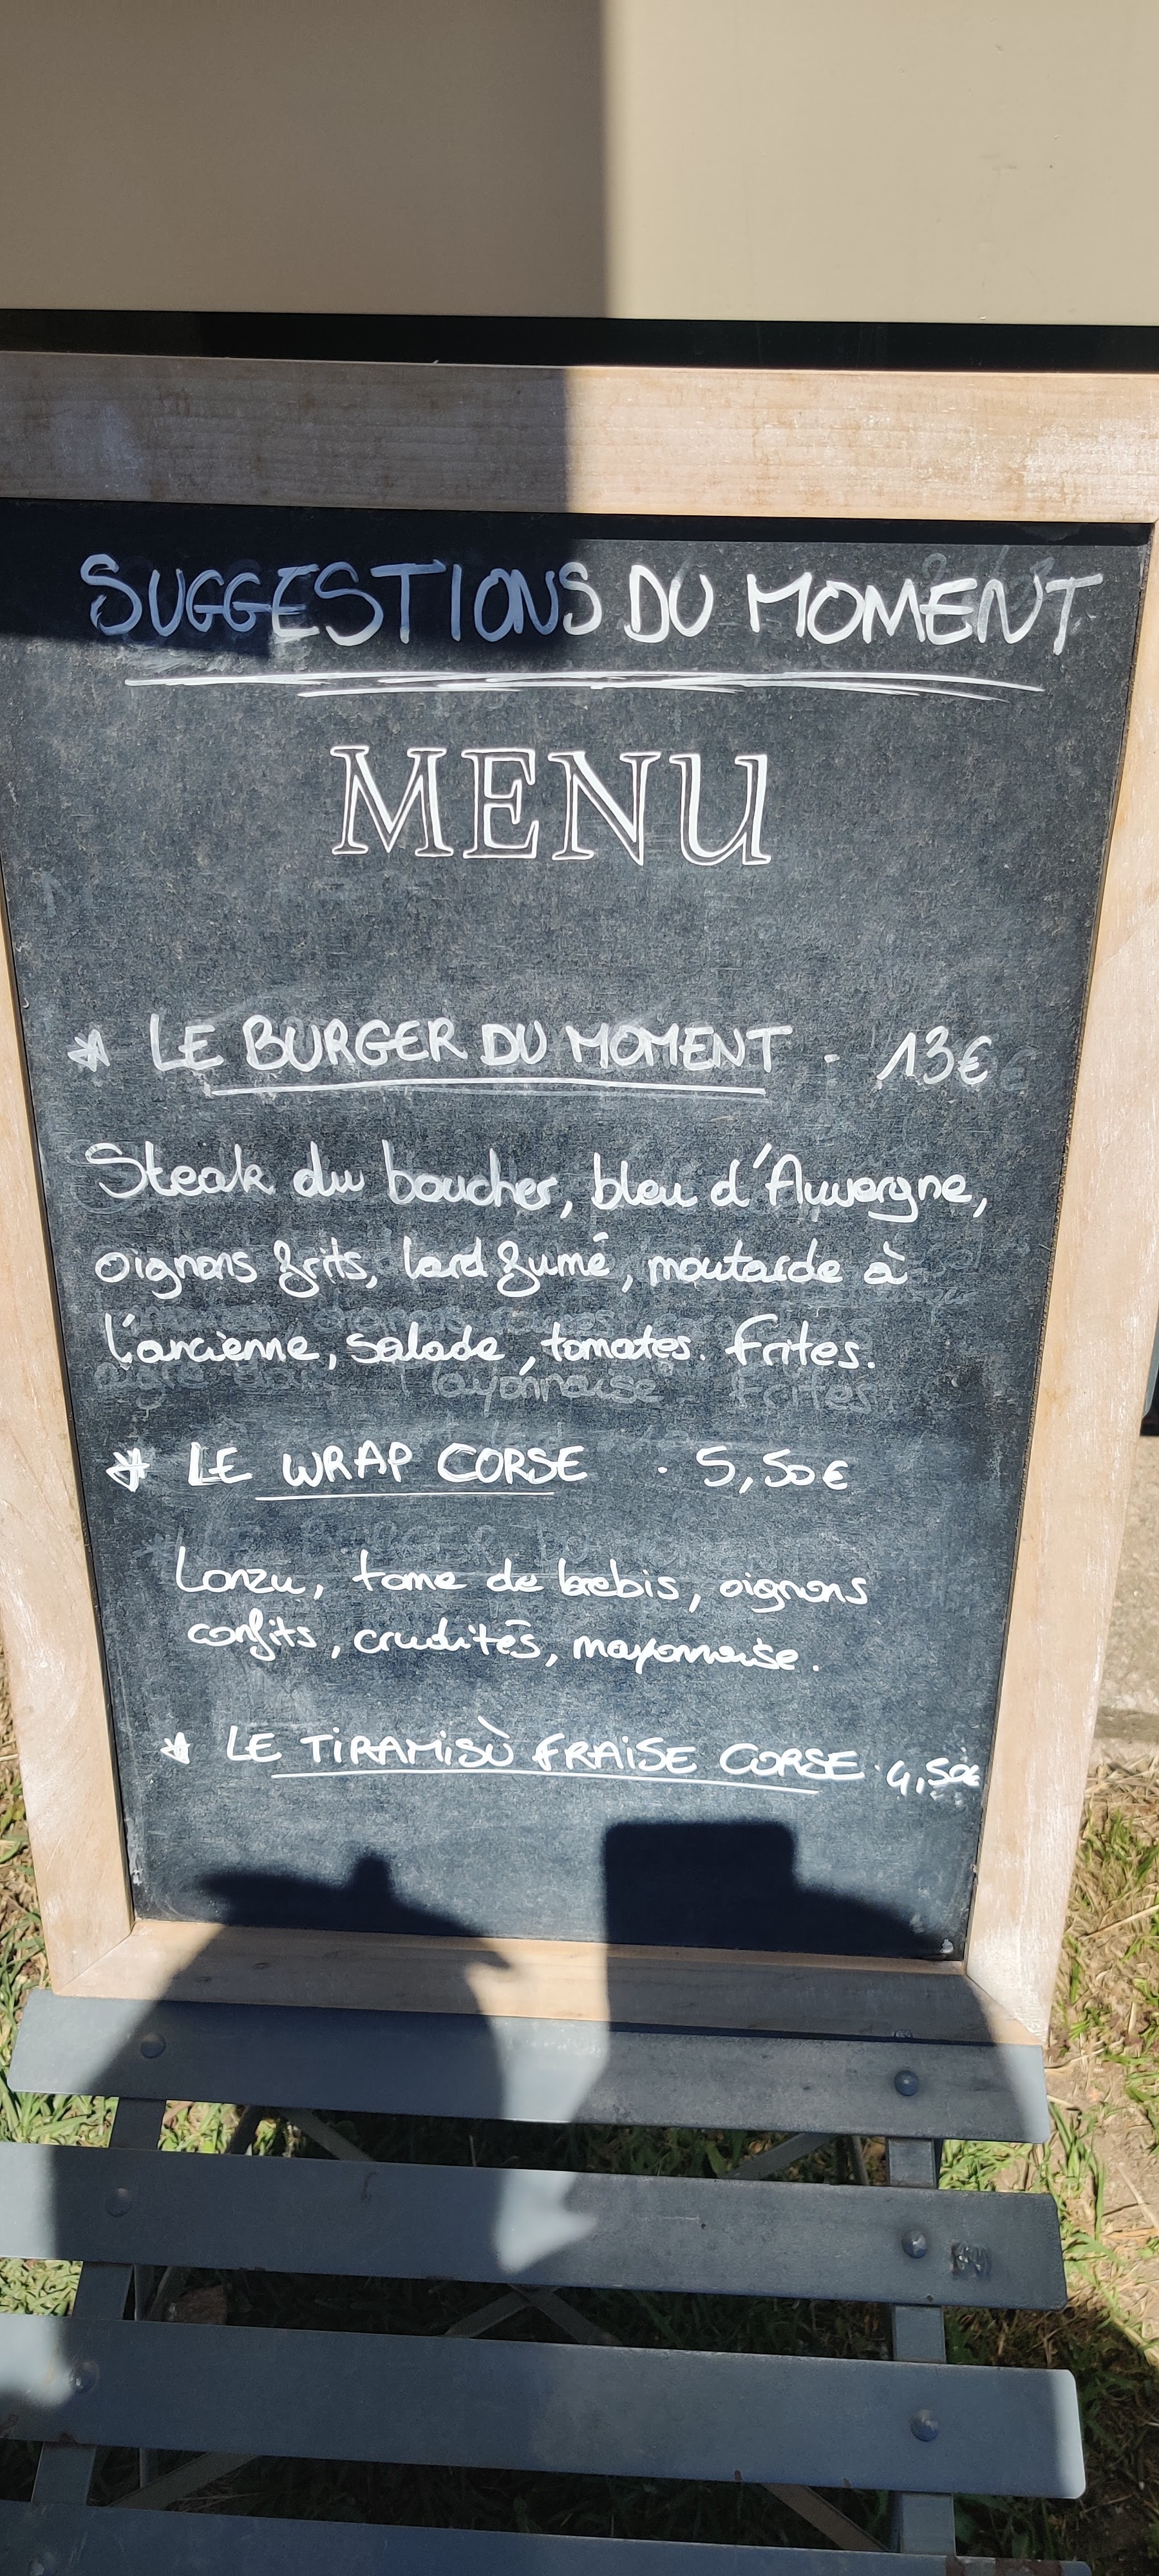 SUGGESTIONS DU MOMENT
MENU
* LE BURGER DU MOMENT . 13€
Steak du boucher, bleu d'Auvergne,
oignons frits, lard fumé, moutarde à
l'ancienne, salade, tomates. Frites.
ayonnaise Frites.
* LE WRAP CORSE . 5,50€
Lonzu, tome de brebis, oignons
confits, crudités, mayonnaise.
* LE TIRAMISÙ FRAISE CORSE . 4,50€